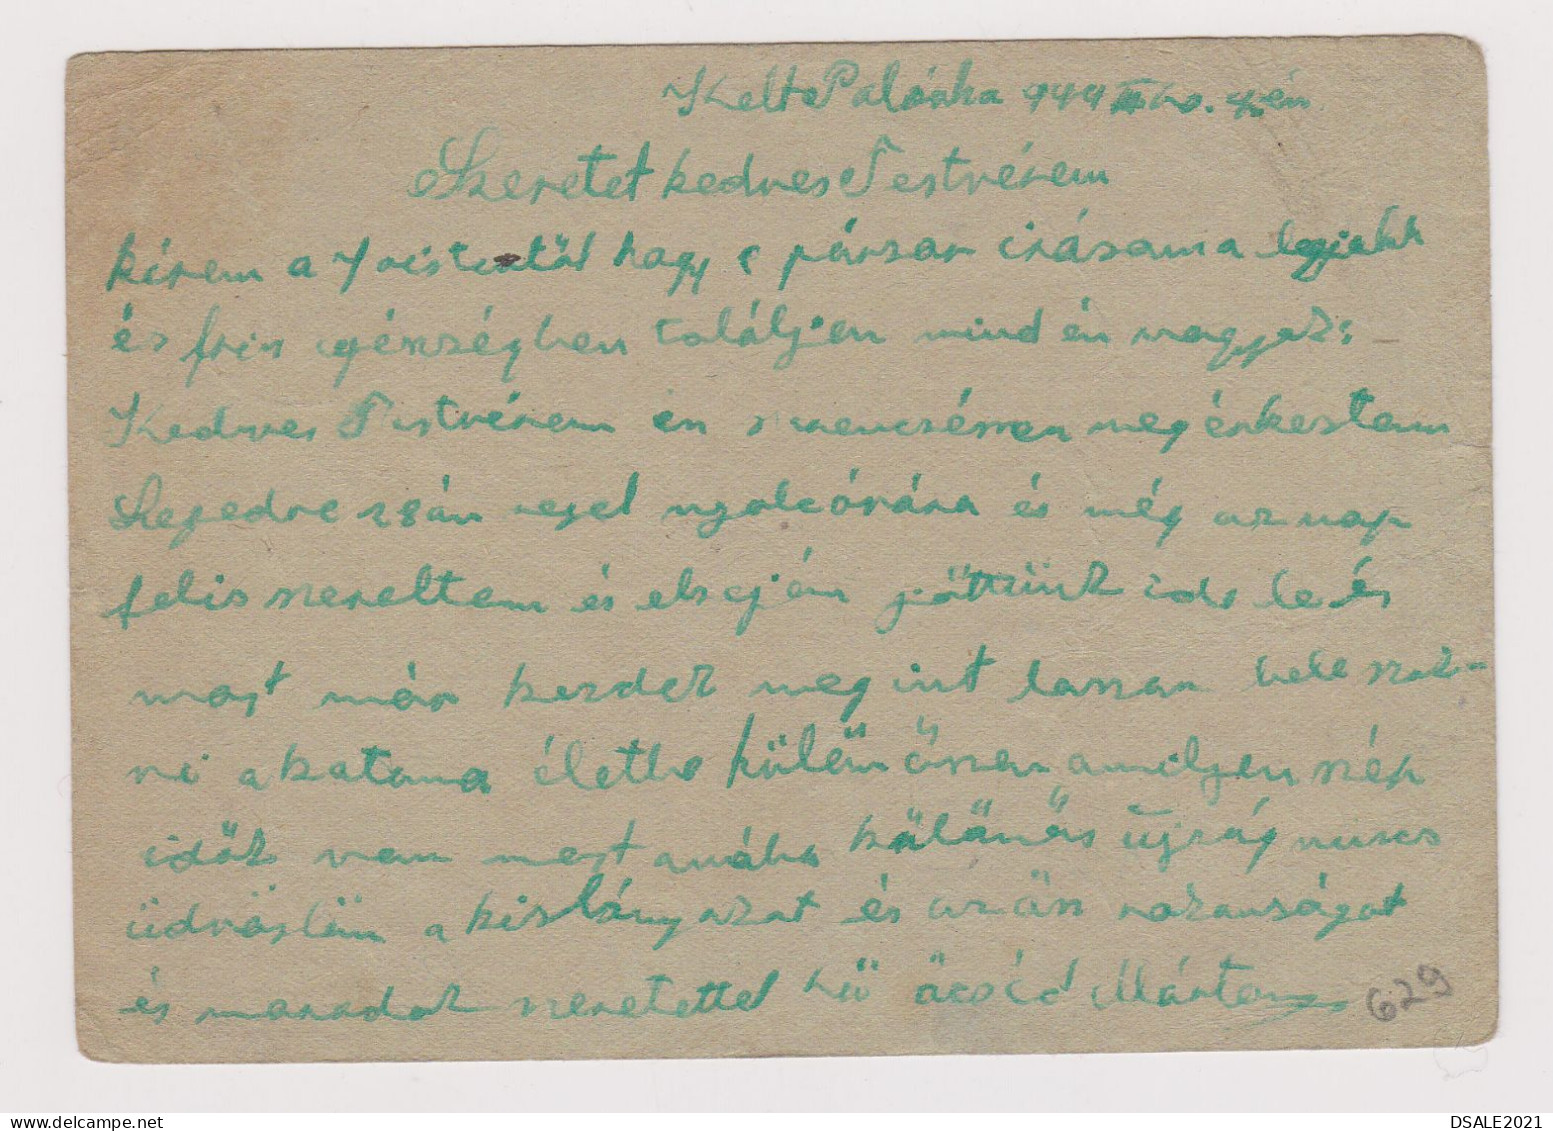 Kelt Palánka 944 III hó. 4én
Szeretet kedves Testvérem
kérem a Jóistentöl hogy e pársor irásom a legjobb
és fris egésségben találjon mind én vagyok:
Kedves Testvérem én szerencséssen meg érkeztem
Szegedre 28án regel nyolcórára és még aznap
felis szereltem és elsején jöttünk ide le és
most már kezdek meg int lassan bele szok-
ni a katona életbe külömössen amilyen szép
idök van mostanába külömös ujság nincs
üdvözlöm a kislányozat és azán
és maradok szeretettel hü öcséd Márton
629
DSALE2021